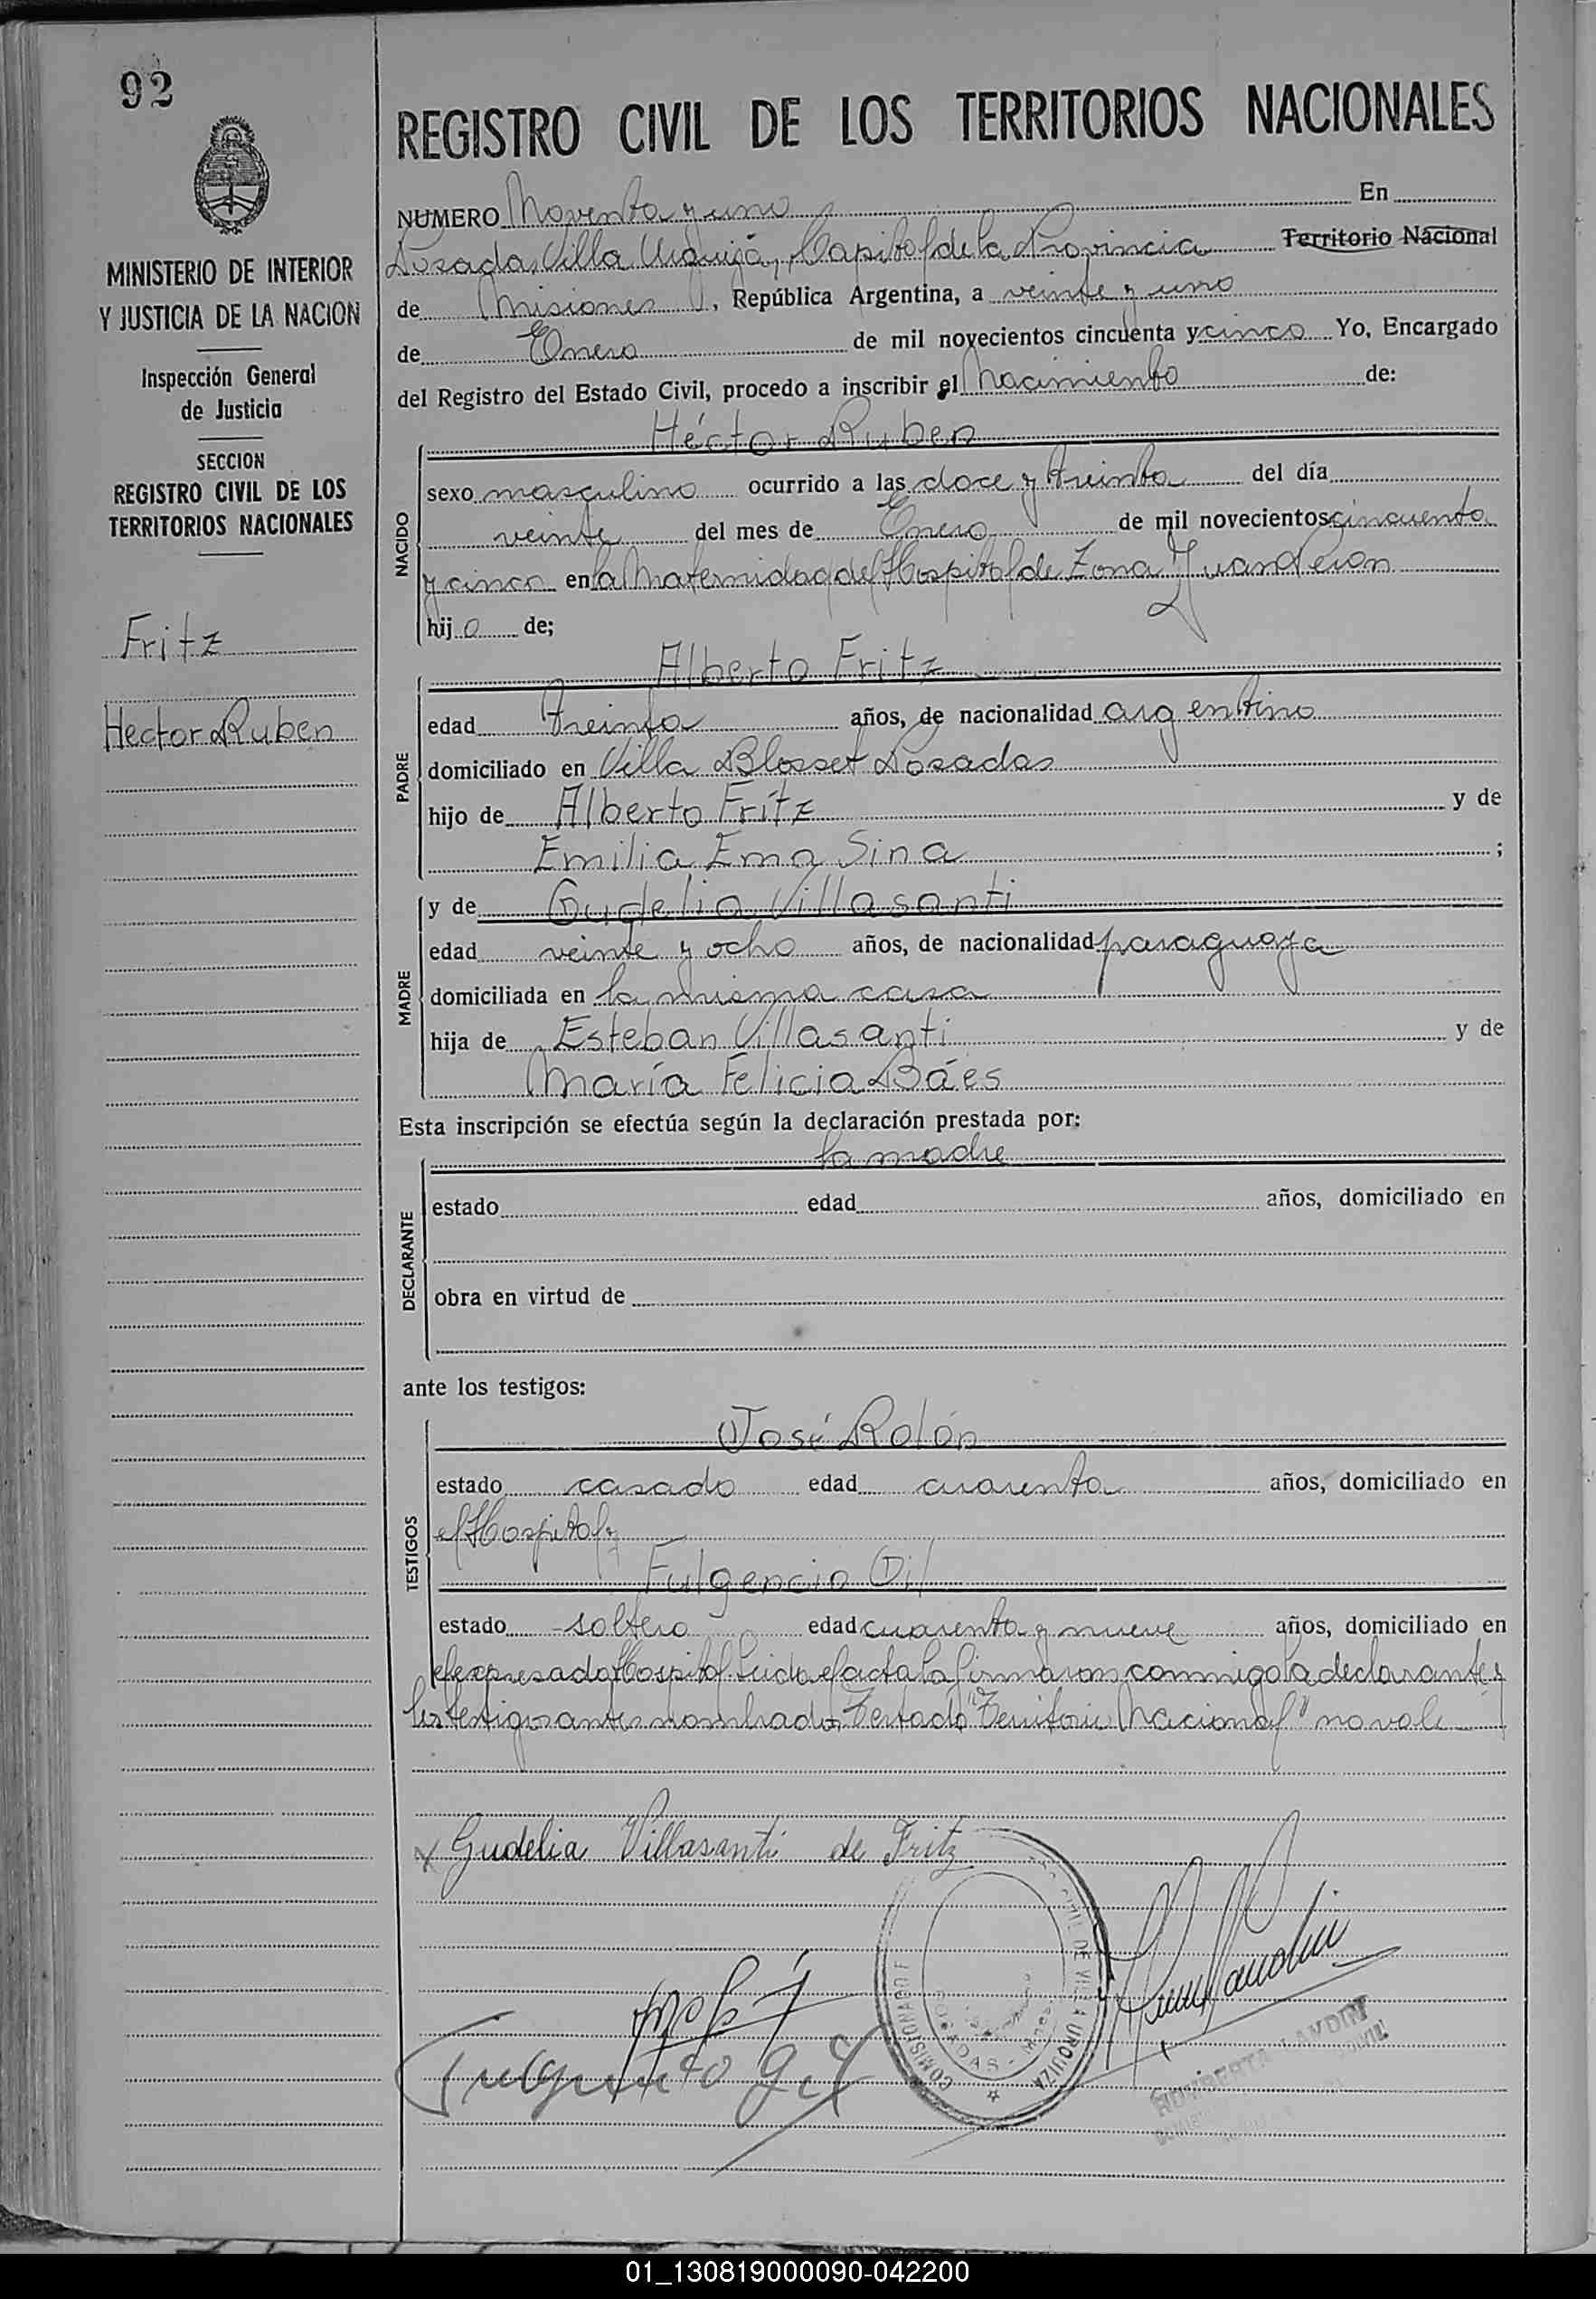 92
MINISTERIO DE INTERIOR
Y JUSTICIA DE LA NACION
Inspección General
de Justicia
SECCION
REGISTRO CIVIL DE LOS
TERRITORIOS NACIONALES
Fritz
Hector Ruben
REGISTRO CIVIL DE LOS TERRITORIOS NACIONALES
NUMERO Noventa y uno En
Posadas, Villa Urquiza, Capital de la Provincia Territorio Nacional
de Misiones, República Argentina, a veinte y uno
de Enero de mil novecientos cincuenta y cinco Yo, Encargado
del Registro del Estado Civil, procedo a inscribir el Nacimiento de:
NACIDO
Héctor Ruben
sexo masculino ocurrido a las doce y treinta del día
veinte del mes de Enero de mil novecientos cincuenta
y cinco en la Maternidad del Hospital de Zona Juan Peron
hijo de;
PADRE
Alberto Fritz
edad treinta años, de nacionalidad argentino
domiciliado en Villa Blosset Posadas
hijo de Alberto Fritz y de
Emilia Ema Sina ;
MADRE
y de Gudelia Villasanti
edad veinte y ocho años, de nacionalidad paraguaya
domiciliada en la misma casa
hija de Esteban Villasanti y de
María Felicia Báes
Esta inscripción se efectúa según la declaración prestada por:
DECLARANTE
la madre
estado edad años, domiciliado en
obra en virtud de
ante los testigos:
TESTIGOS
José Rolón
estado casado edad cuarenta años, domiciliado en
el Hospital y
Fulgencio Gil
estado soltero edad cuarenta y nueve años, domiciliado en
el expresado Hospital. Leida el acta la firmaron conmigo la declarante y
los testigos antes nombrados, Testado "Territorio Nacional" no vale
Gudelia Villasanti de Fritz
Fulgencio Gil
CIVIL DE VILLA URQUIZA
COMISIONADO
POSADAS - Mnes
01_130819000090-042200